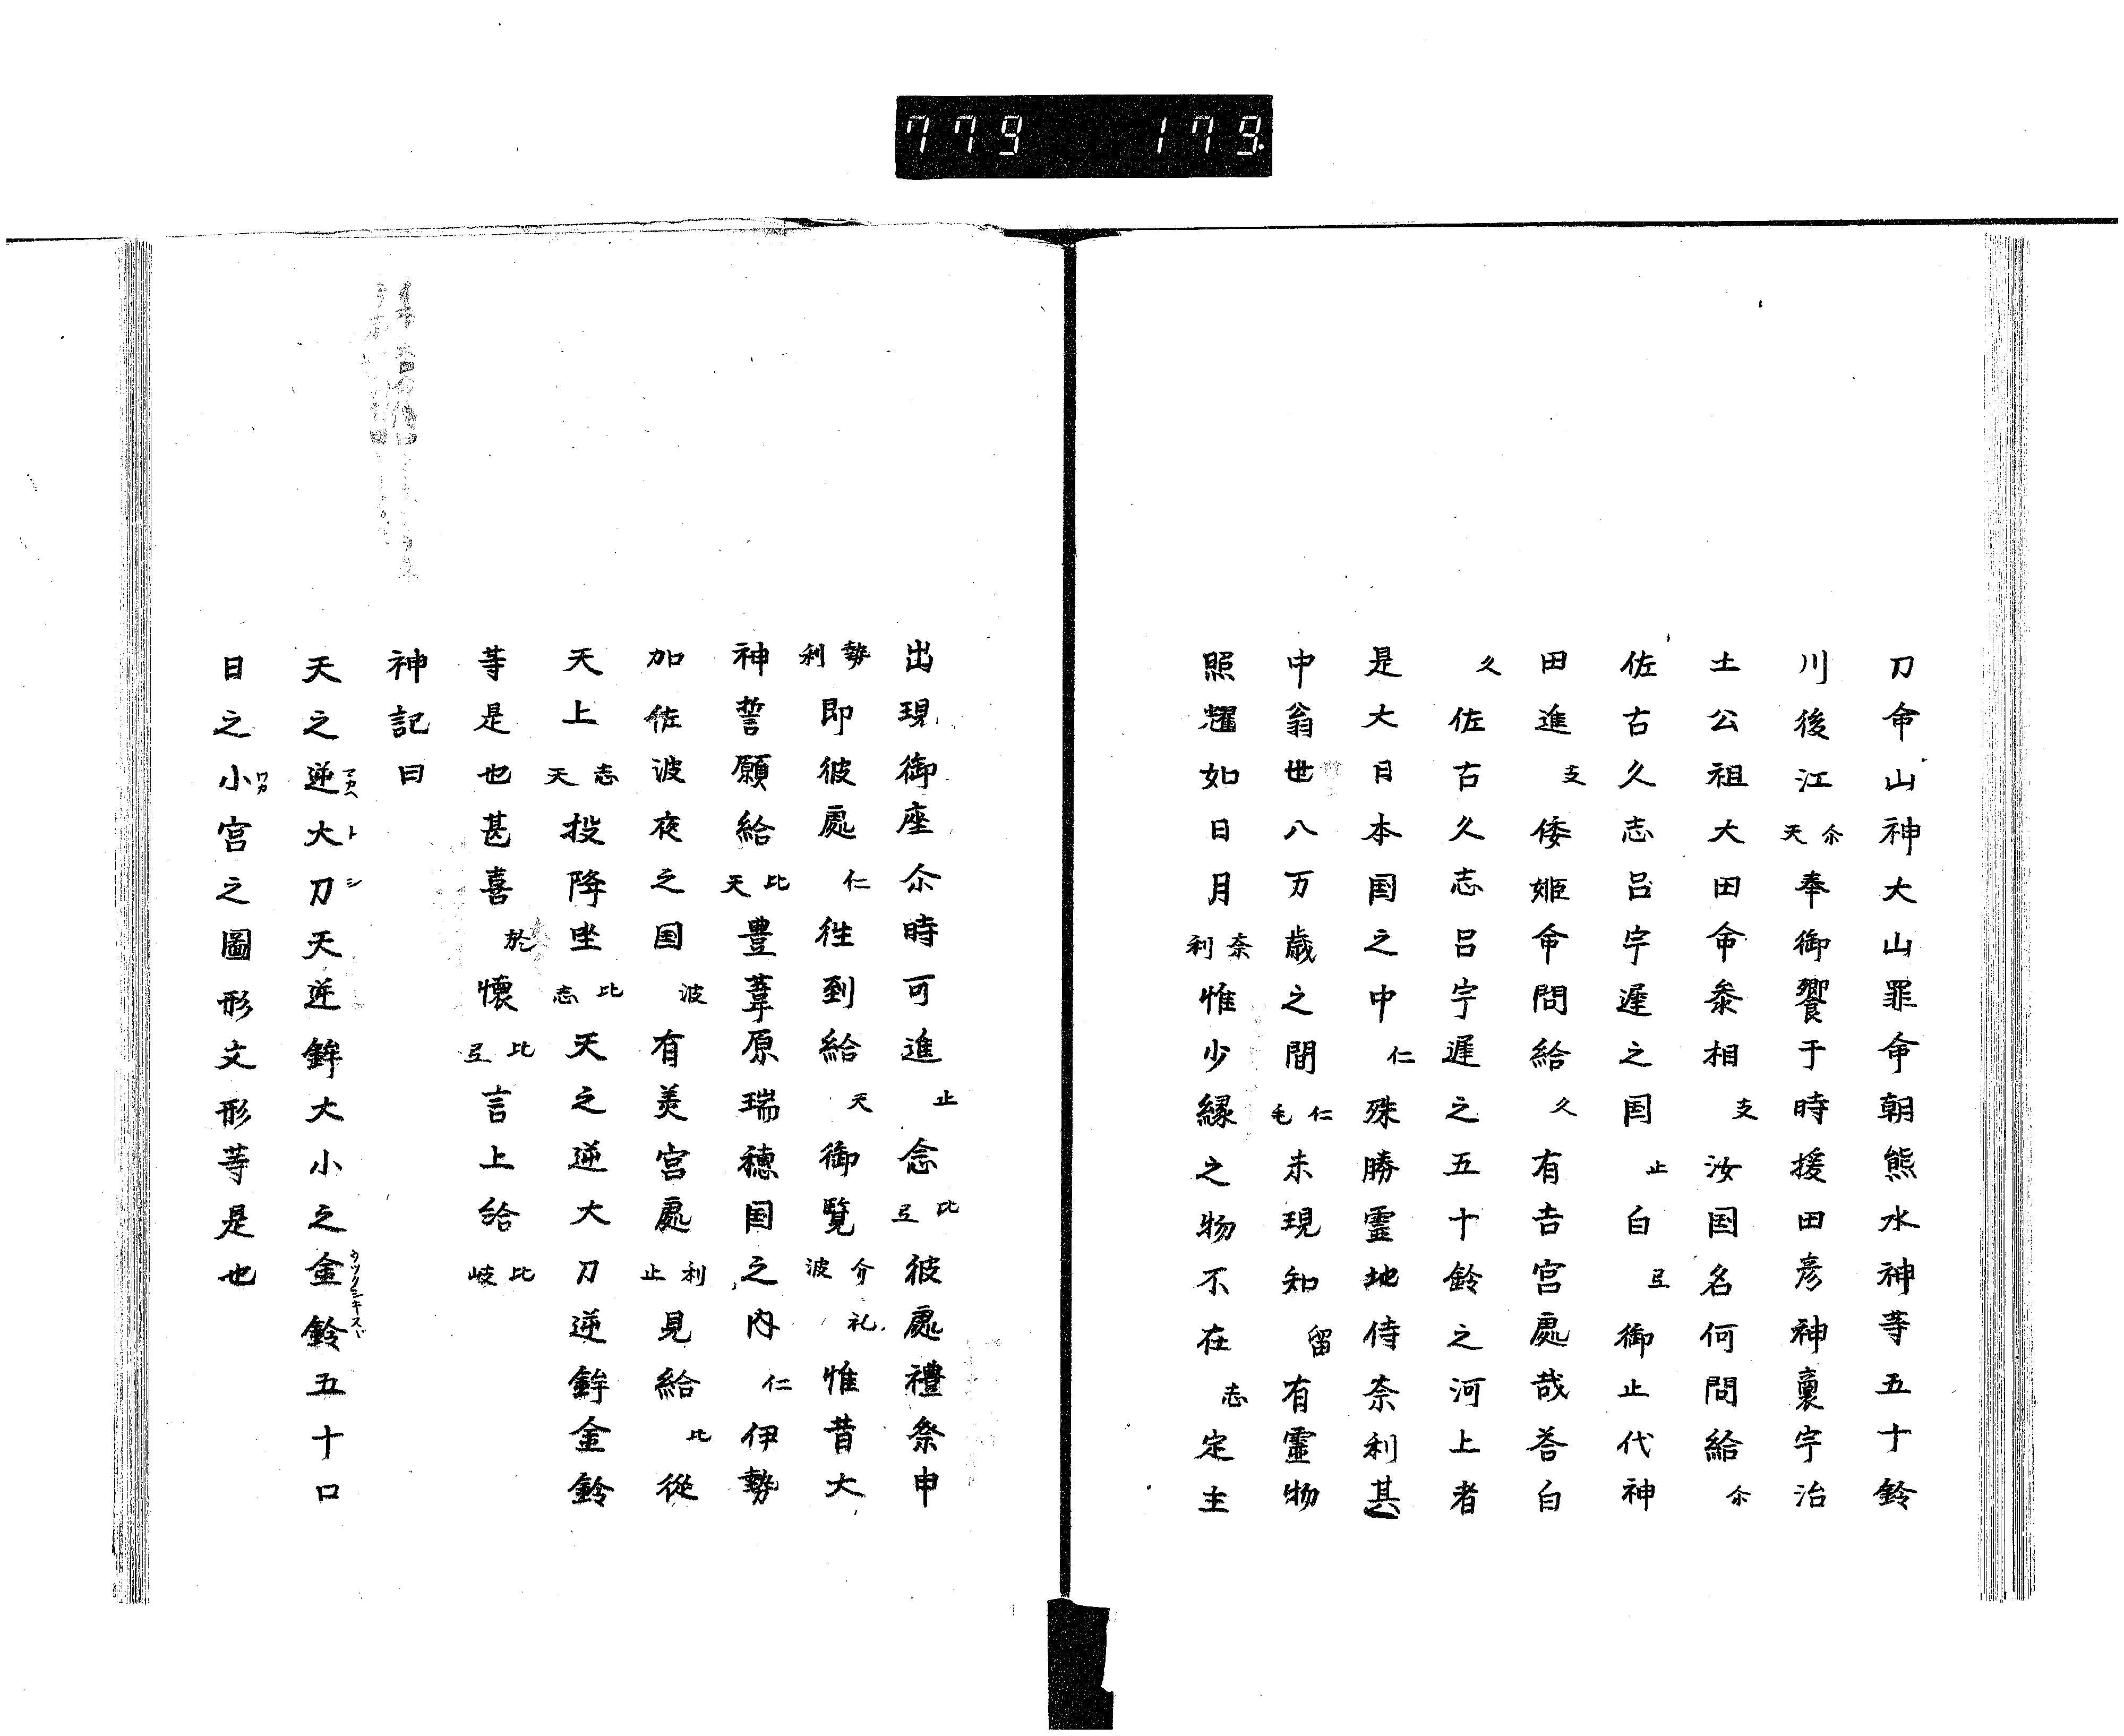 779 179.
刀命山神大山罪命朝熊水神等五十鈴
川後江尓天奉御饗于時援田彦神裔宇治
土公祖大田命参相支汝国名何問給尓
佐古久志呂宇遅之国止白弖御止代神
田進支倭姫命問給久有吉宮處哉答白
久佐古久志呂宇遅之五十鈴之河上者
是大日本国之中仁殊勝霊地侍奈利其
中翁世八万歳之間仁毛未現知留有霊物
照耀如日月奈利惟少縁之物不在志定主
出現御座尓時可進止念比弖彼處禮祭申
勢利即彼處仁往到給天御覧介礼波惟昔大
神誓願給比天豊葦原瑞穂国之内仁伊勢
加佐波夜之国波有美宮處利止見給比從
天上志天投降坐比志天之逆大刀逆鉾金鈴
等是也甚喜於懐比弖言上給比岐
神記曰
天之逆大刀天逆鉾大小之金鈴五十口
日之小宮之圖形文形等是也